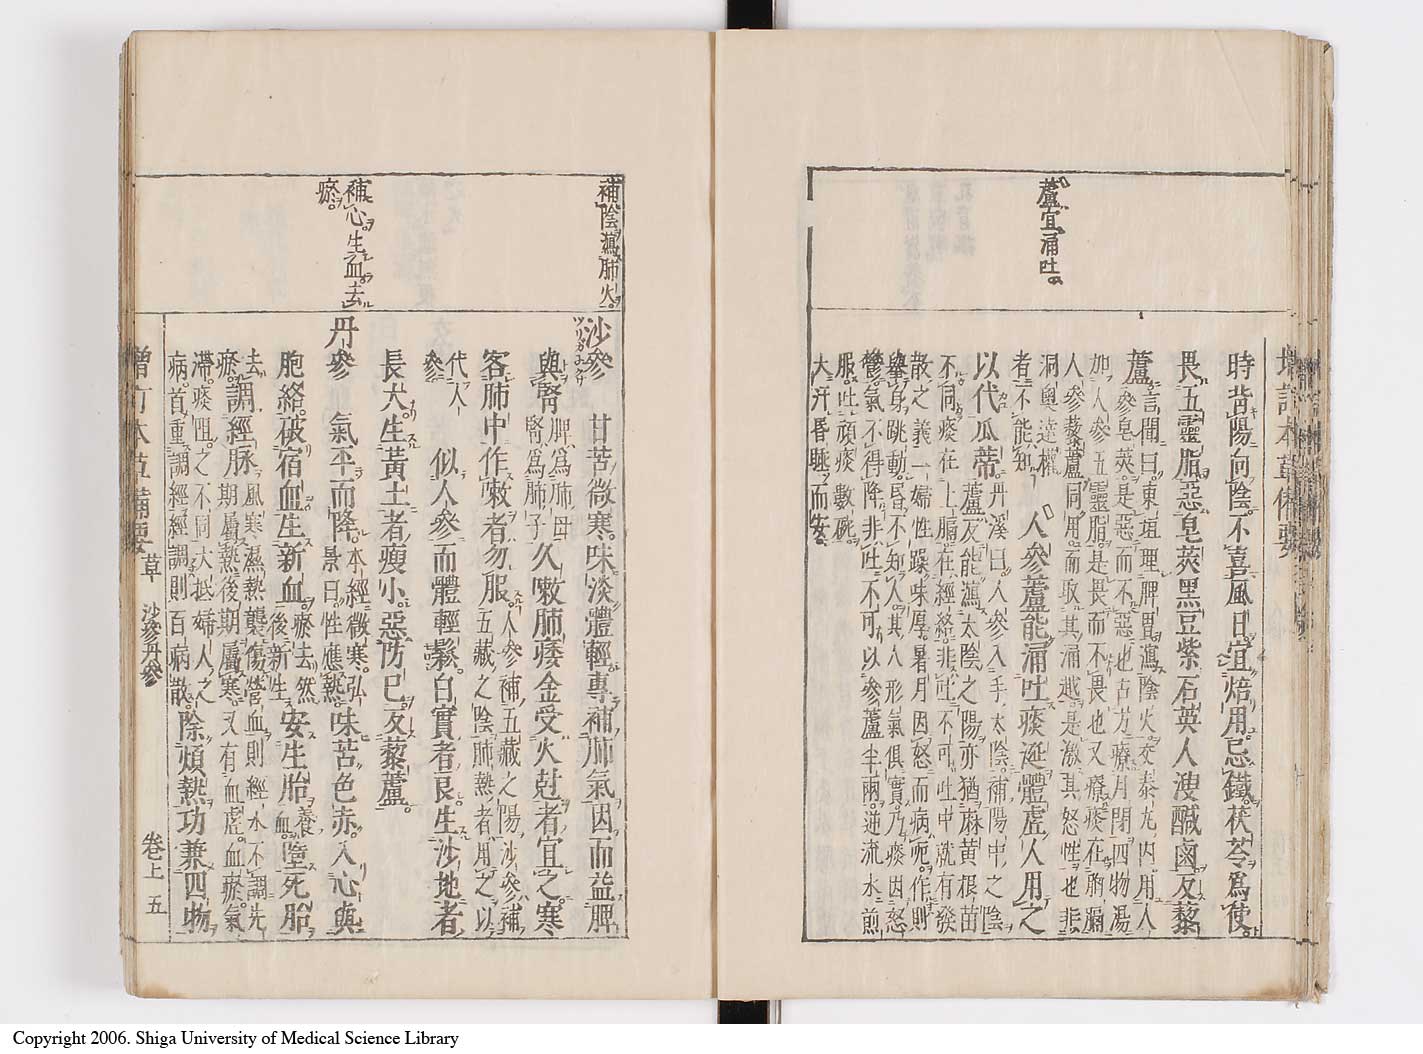 蘆宜涌吐
時背陽向陰不喜風日宜焙用忌鐵茯苓爲使
畏五靈脂惡皂莢黑豆紫石英人溲鹹鹵反藜
蘆
言聞曰東垣理脾胃瀉陰火交泰丸内用人
參皂莢是惡而不惡也古方療月閉四物湯
加人參五靈脂是畏而不畏也又療痰在胸膈
人參藜蘆同用而取其涌越是激其怒性也非
洞奧達權
者不能知
人參蘆能涌吐痰涎體虛人用之
以代瓜蒂
丹溪曰人參入手太陰補陽中之陰
蘆反能瀉太陰之陽亦猶麻黄根苗
不同痰在上膈在經絡非吐不可吐中就有發
散之義一婦性躁味厚暑月因怒而病呃作則
舉身跳動昏不知人其人形氣俱實乃痰因怒
鬱氣不得降非吐不可以參蘆半兩逆流水煎
服吐頑痰數碗
大汗昏睡而安
增訂本草備要
補陰瀉肺火
補心生血去
瘀
沙參
ツリガネ
甘苦微寒味淡體輕專補肺氣因而益脾
與腎
脾爲肺母
腎爲肺子
久嗽肺痿金受火尅者宜之寒
客肺中作嗽者勿服
人參補五藏之陽沙參補
五藏之陰肺熱者用之以
代人
參
似人參而體輕鬆白實者良生沙地者
長大生黄土者瘦小惡防巳反藜蘆
丹參
氣平而降
本經微寒弘
景曰性應熱
味苦色赤入心與
胞絡破宿血生新血
瘀去然
後新生
安生胎
養
血
墮死胎
去
瘀
調經脉
風寒濕熱襲傷營血則經水不調先
期屬熱後期屬寒又有血虛血瘀氣
滯痰阻之不同大抵婦人之
病首重調經經調則百病散
除煩熱功兼四物
增訂本草備要
草
沙參丹參
卷上
五
Copyright 2006. Shiga University of Medical Science Library